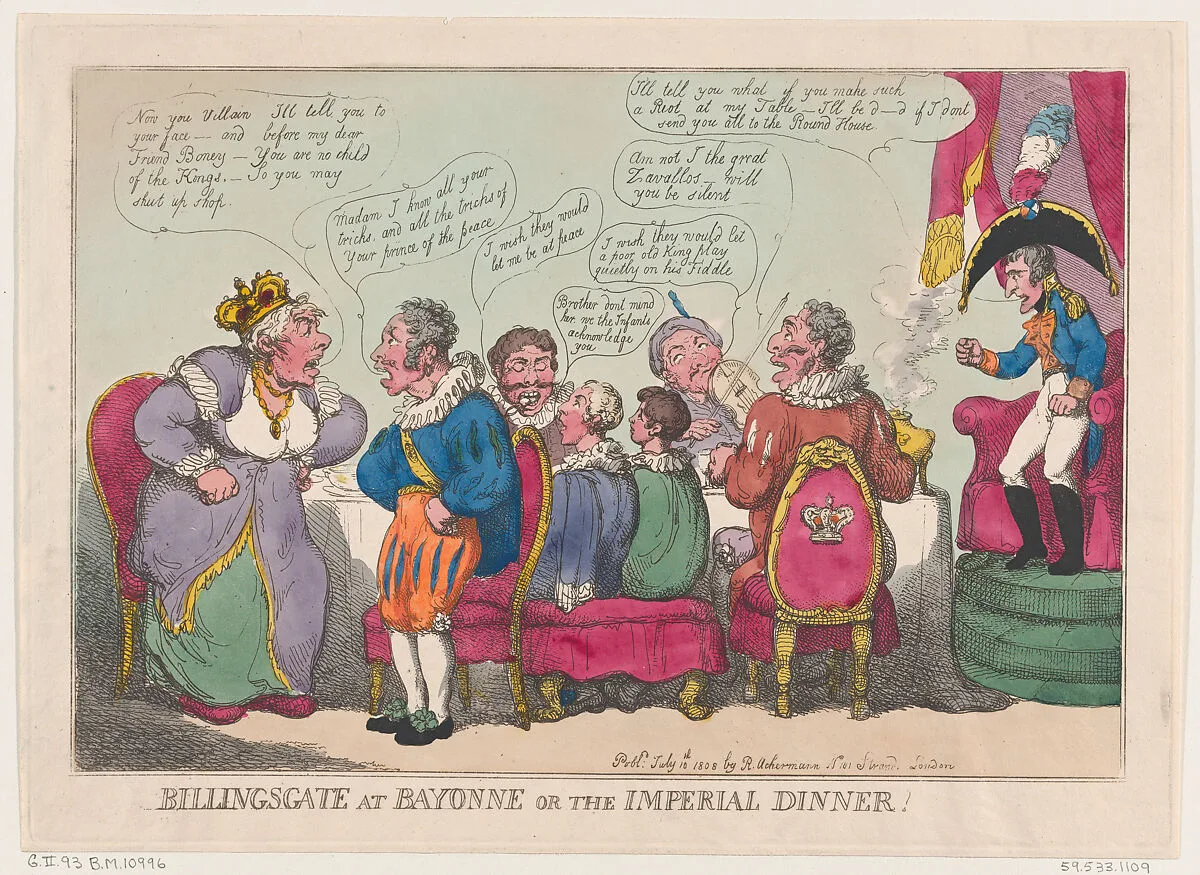 Now you Villain I'll tell you to
your face — and before my dear
Friend Boney — You are no child
of the Kings. — So you may
shut up shop.
Madam I know all your
tricks, and all the tricks of
Your prince of the peace
I wish they would
let me be at peace
Brother dont mind
her we the Infants
acknowledge
you
I wish they would let
a poor old King play
quietly on his Fiddle
Am not I the great
Zavallos — will
you be silent
I'll tell you what if you make such
a Riot at my Table — I'll be d—d if I dont
send you all to the Round House.
Publ.d July 10th 1808 by R. Ackermann No 101 Strand. London
BILLINGSGATE AT BAYONNE OR THE IMPERIAL DINNER!
G.II.93 B.M.10996
59.533.1109